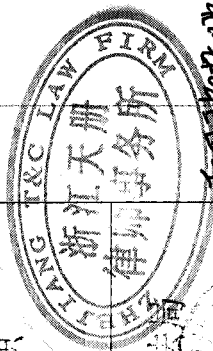 ZHEJIANG T&C LAW FIRM
浙江天册
律师事务所
司